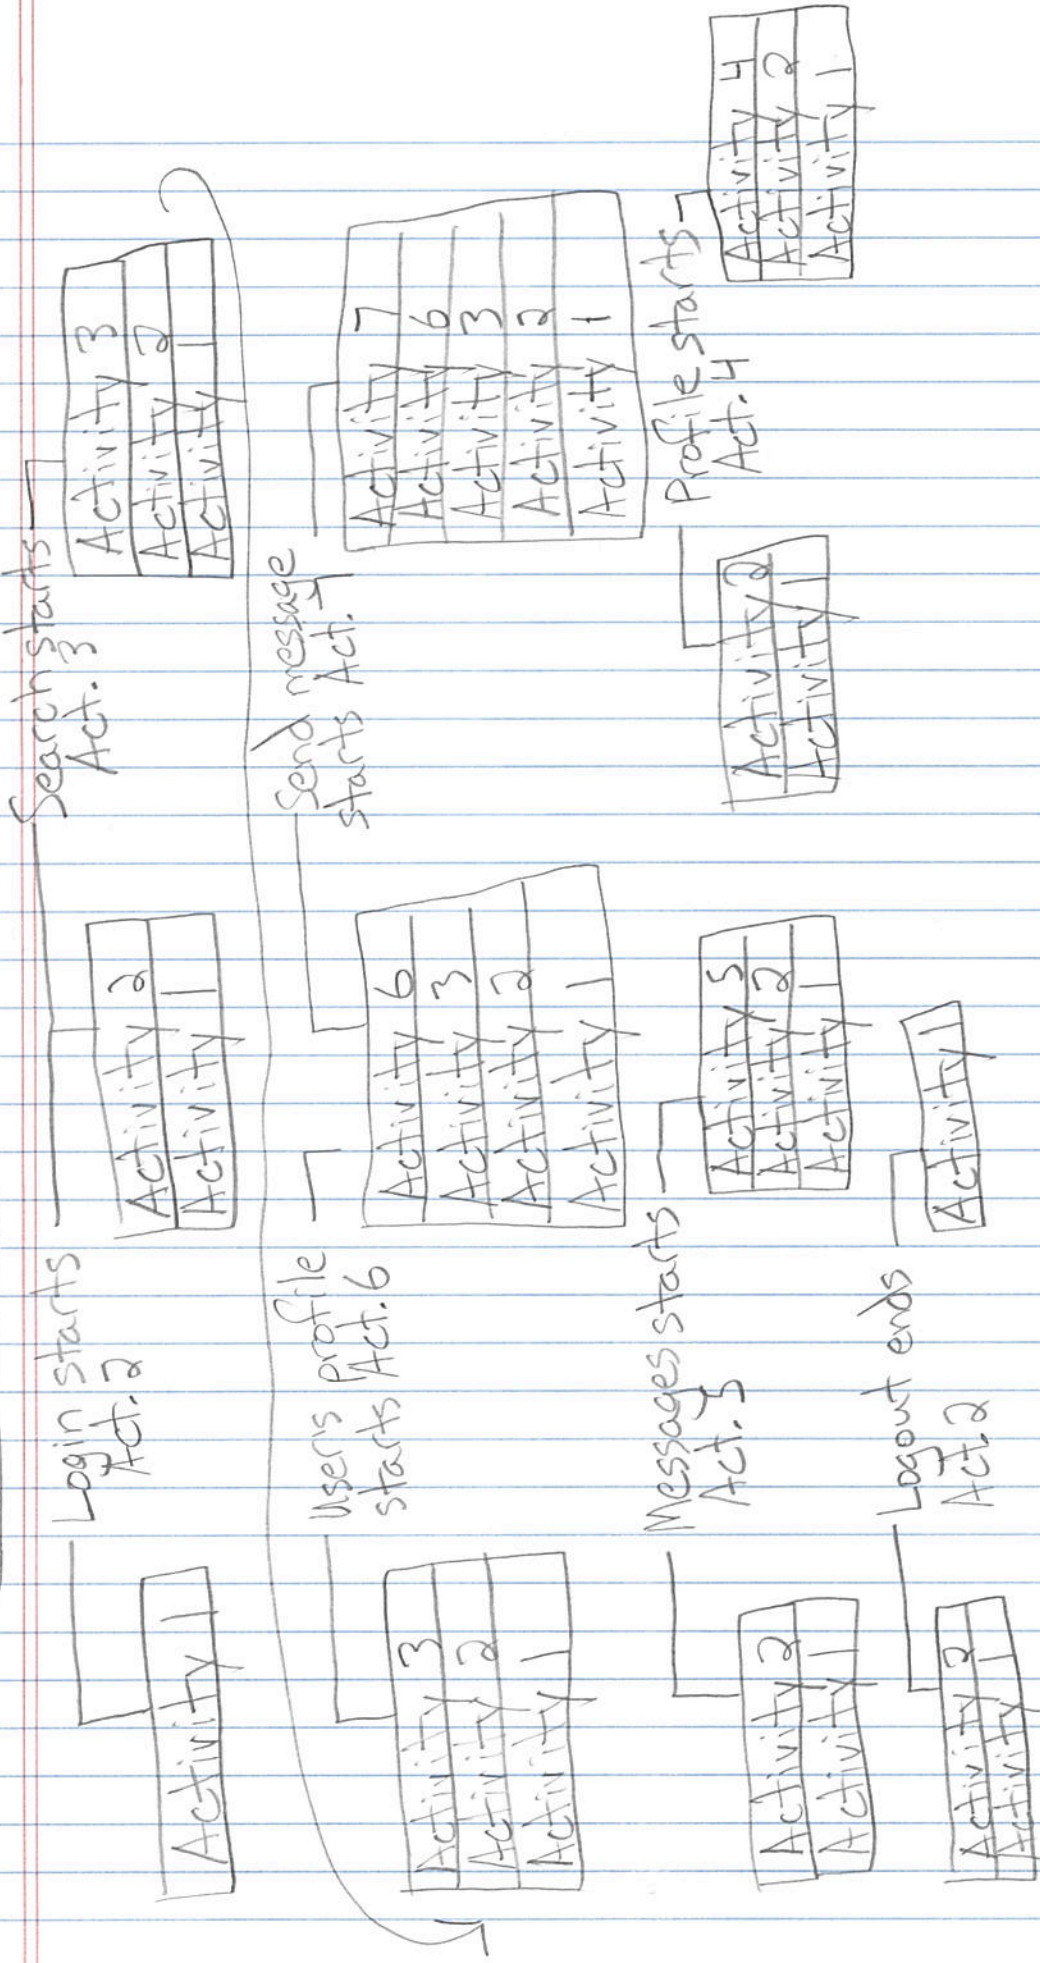 Activity 1
Login starts
Act. 2
Activity 2
Activity 1
Search starts
Act. 3
Activity 3
Activity 2
Activity 1
Activity 3
Activity 2
Activity 1
User's profile
starts Act. 6
Activity 6
Activity 3
Activity 2
Activity 1
Send message
starts Act. 7
Activity 7
Activity 6
Activity 3
Activity 2
Activity 1
Activity 2
Activity 1
Messages starts
Act. 5
Activity 5
Activity 2
Activity 1
Activity 2
Activity 1
Profile starts
Act. 4
Activity 4
Activity 2
Activity 1
Activity 2
Activity 1
Logout ends
Act. 2
Activity 1